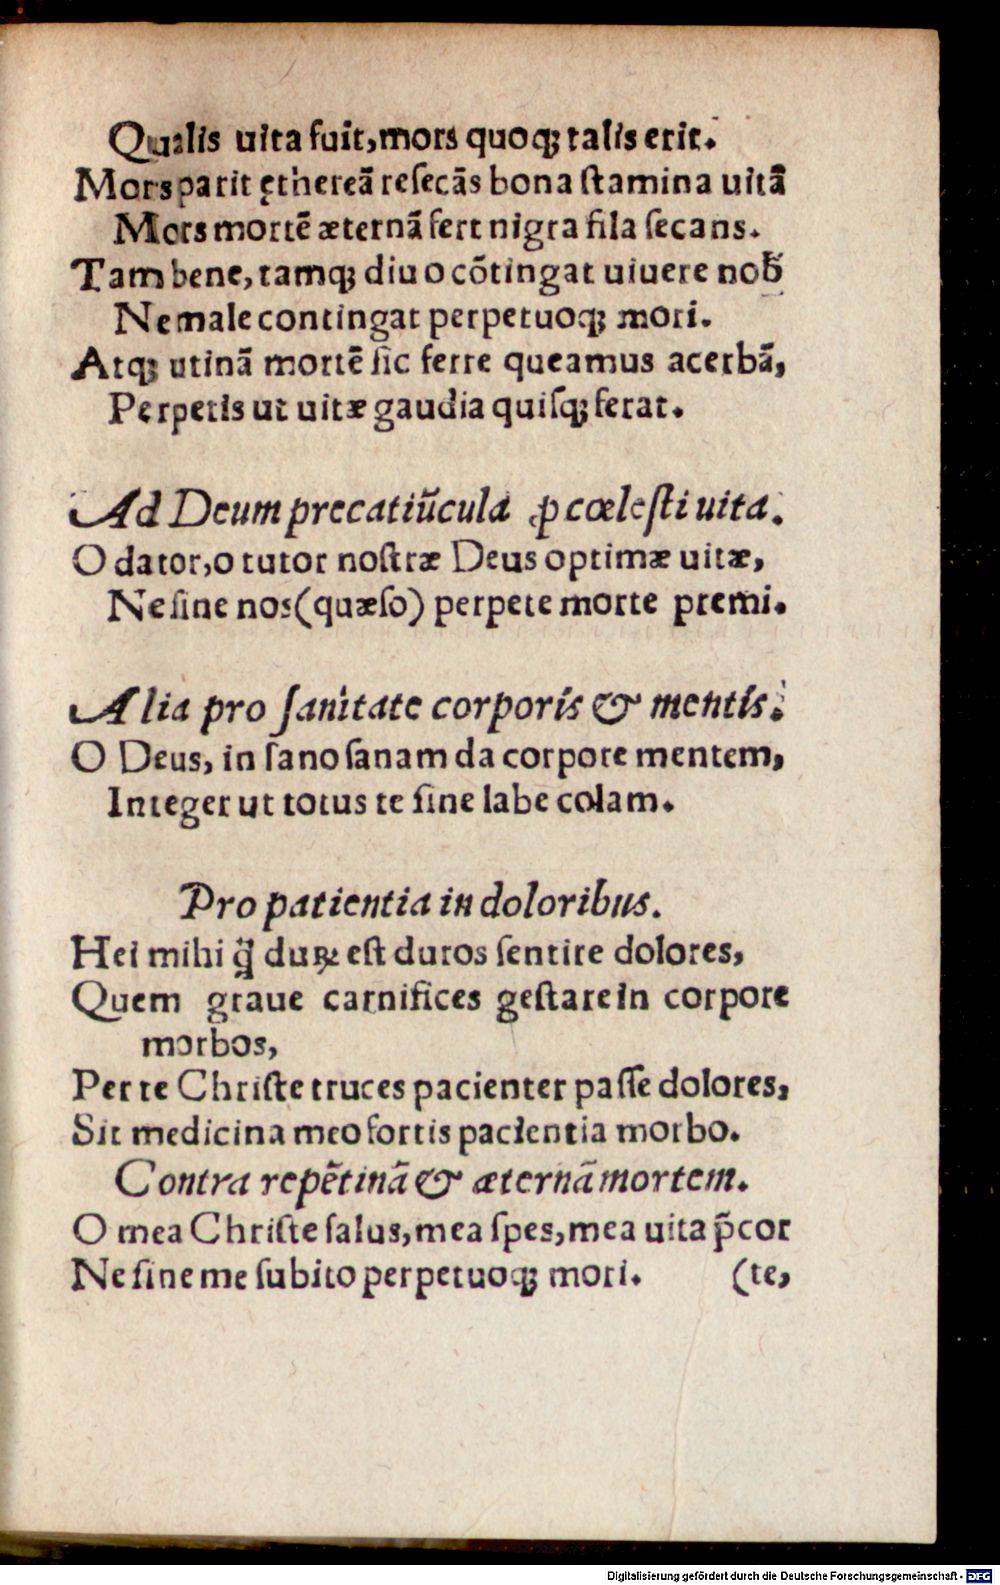 Qualis uita fuit, mors quoqꝫ talis erit.
Mors parit ętthereā resecās bona stamina uitā
Mors mortē æternā fert nigra fila secans.
Tam bene, tamqꝫ diu o cōtingat uiuere nob
Ne male contingat perpetuoqꝫ mori.
Atqꝫ utinā mortē sic ferre queamus acerbā,
Perpetis ut uitæ gaudia quisqꝫ ferat.
Ad Deum precatiūcula ꝓ cœlesti uita.
O dator, o tutor nostræ Deus optimæ uitæ,
Ne sine nos (quæso) perpete morte premi.
Alia pro sanitate corporis & mentis.
O Deus, in sano sanam da corpore mentem,
Integer ut totus te sine labe colam.
Pro patientia in doloribus.
Hei mihi q̃ duꝝ est duros sentire dolores,
Quem graue carnifices gestare in corpore
morbos,
Per te Christe truces pacienter passe dolores,
Sit medicina meo fortis pacientia morbo.
Contra repētinā & æternā mortem.
O mea Christe salus, mea spes, mea uita p̄cor
Ne sine me subito perpetuoqꝫ mori. (te,
Digitalisierung gefördert durch die Deutsche Forschungsgemeinschaft - DFG